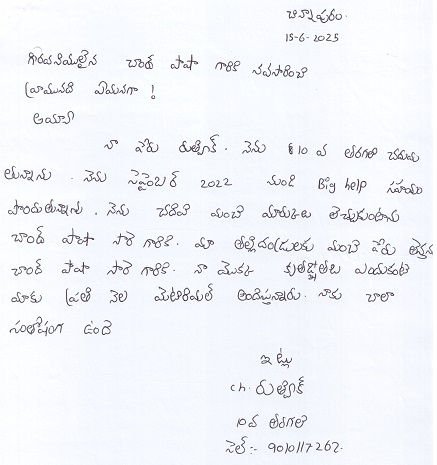 చిన్నాపురం.
15-6-2025
గౌరవనీయులైన చాంద్ పాషా గారికి నమస్కరించి
వ్రాయునది ఏమనగా !
అయ్యా
నా పేరు రుత్విక్. నేను 10 వ తరగతి చదువు
తున్నాను. నేను సెప్టెంబర్ 2022 నుండి Big help సహాయం
పొందుతున్నాను. నేను చదివి మంచి మార్కులు తెచ్చుకుంటాను
చాంద్ పాషా సార్ గారికి. మా తల్లిదండ్రులకు మంచి పేరు తెస్తాను
చాంద్ పాషా సార్ గారికి. నా యొక్క కృతజ్ఞతలు
మాకు ప్రతి నెల మెటీరియల్ అందిస్తున్నారు. నాకు చాలా
సంతోషంగా ఉంది
ఇట్లు
ch. రుత్విక్
10వ తరగతి
సెల్ :- 9010117262.